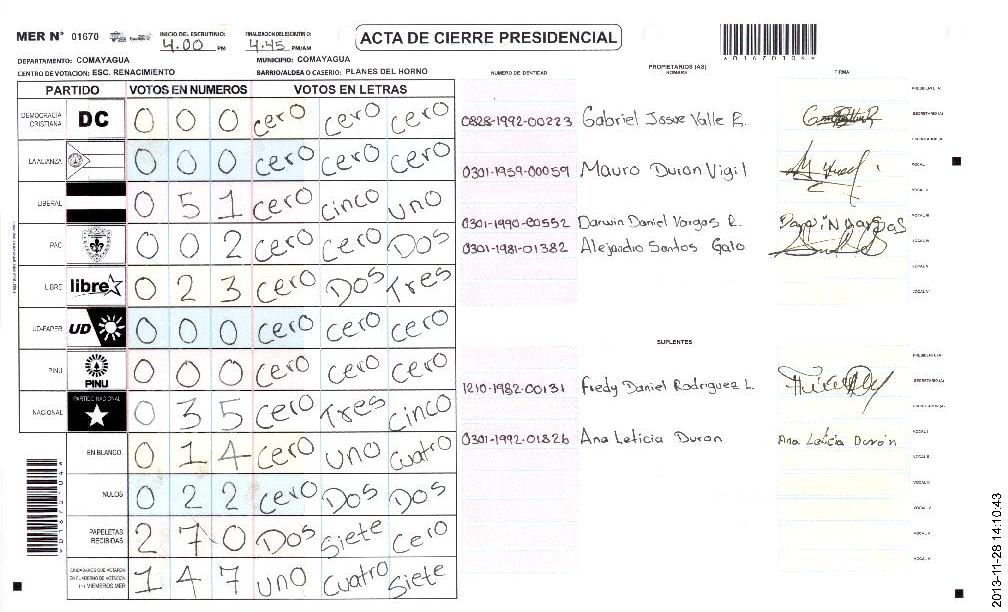 MER N° 01670 INICIO DEL ESCRUTINIO: 4.00 PM FINALIZACION DEL ESCRUTINIO: 4.45 PM/AM ACTA DE CIERRE PRESIDENCIAL
DEPARTAMENTO: COMAYAGUA MUNICIPIO: COMAYAGUA
CENTRO DE VOTACION: ESC. RENACIMIENTO BARRIO/ALDEA O CASERIO: PLANES DEL HORNO
NUMERO DE IDENTIDAD PROPIETARIOS (AS) NOMBRE FIRMA
PARTIDO VOTOS EN NUMEROS VOTOS EN LETRAS
DEMOCRACIA CRISTIANA DC 0 0 0 cero cero cero
LA ALIANZA 0 0 0 cero cero cero
LIBERAL 0 5 1 cero cinco uno
PAC 0 0 2 cero cero Dos
LIBRE libre 0 2 3 cero Dos Tres
UD-FAPER UD 0 0 0 cero cero cero
PINU PINU 0 0 0 cero cero cero
NACIONAL PARTIDO NACIONAL 0 3 5 cero Tres cinco
EN BLANCO 0 1 4 cero uno cuatro
NULOS 0 2 2 cero Dos Dos
PAPELETAS RECIBIDAS 2 7 0 Dos siete cero
CIUDADANOS QUE VOTARON EN CUADERNO DE VOTACION (+) MIEMBROS MER 1 4 7 uno cuatro siete
0828-1992-00223 Gabriel Josue Valle R.
0301-1959-00059 Mauro Duron Vigil
0301-1990-00552 Darwin Daniel Vargas R.
0301-1981-01382 Alejandro Santos Galo
SUPLENTES
1210-1982-00131 Fredy Daniel Rodriguez L.
0301-1992-01826 Ana Leticia Duron Ana Leticia Durón
2013-11-28 14:10:43